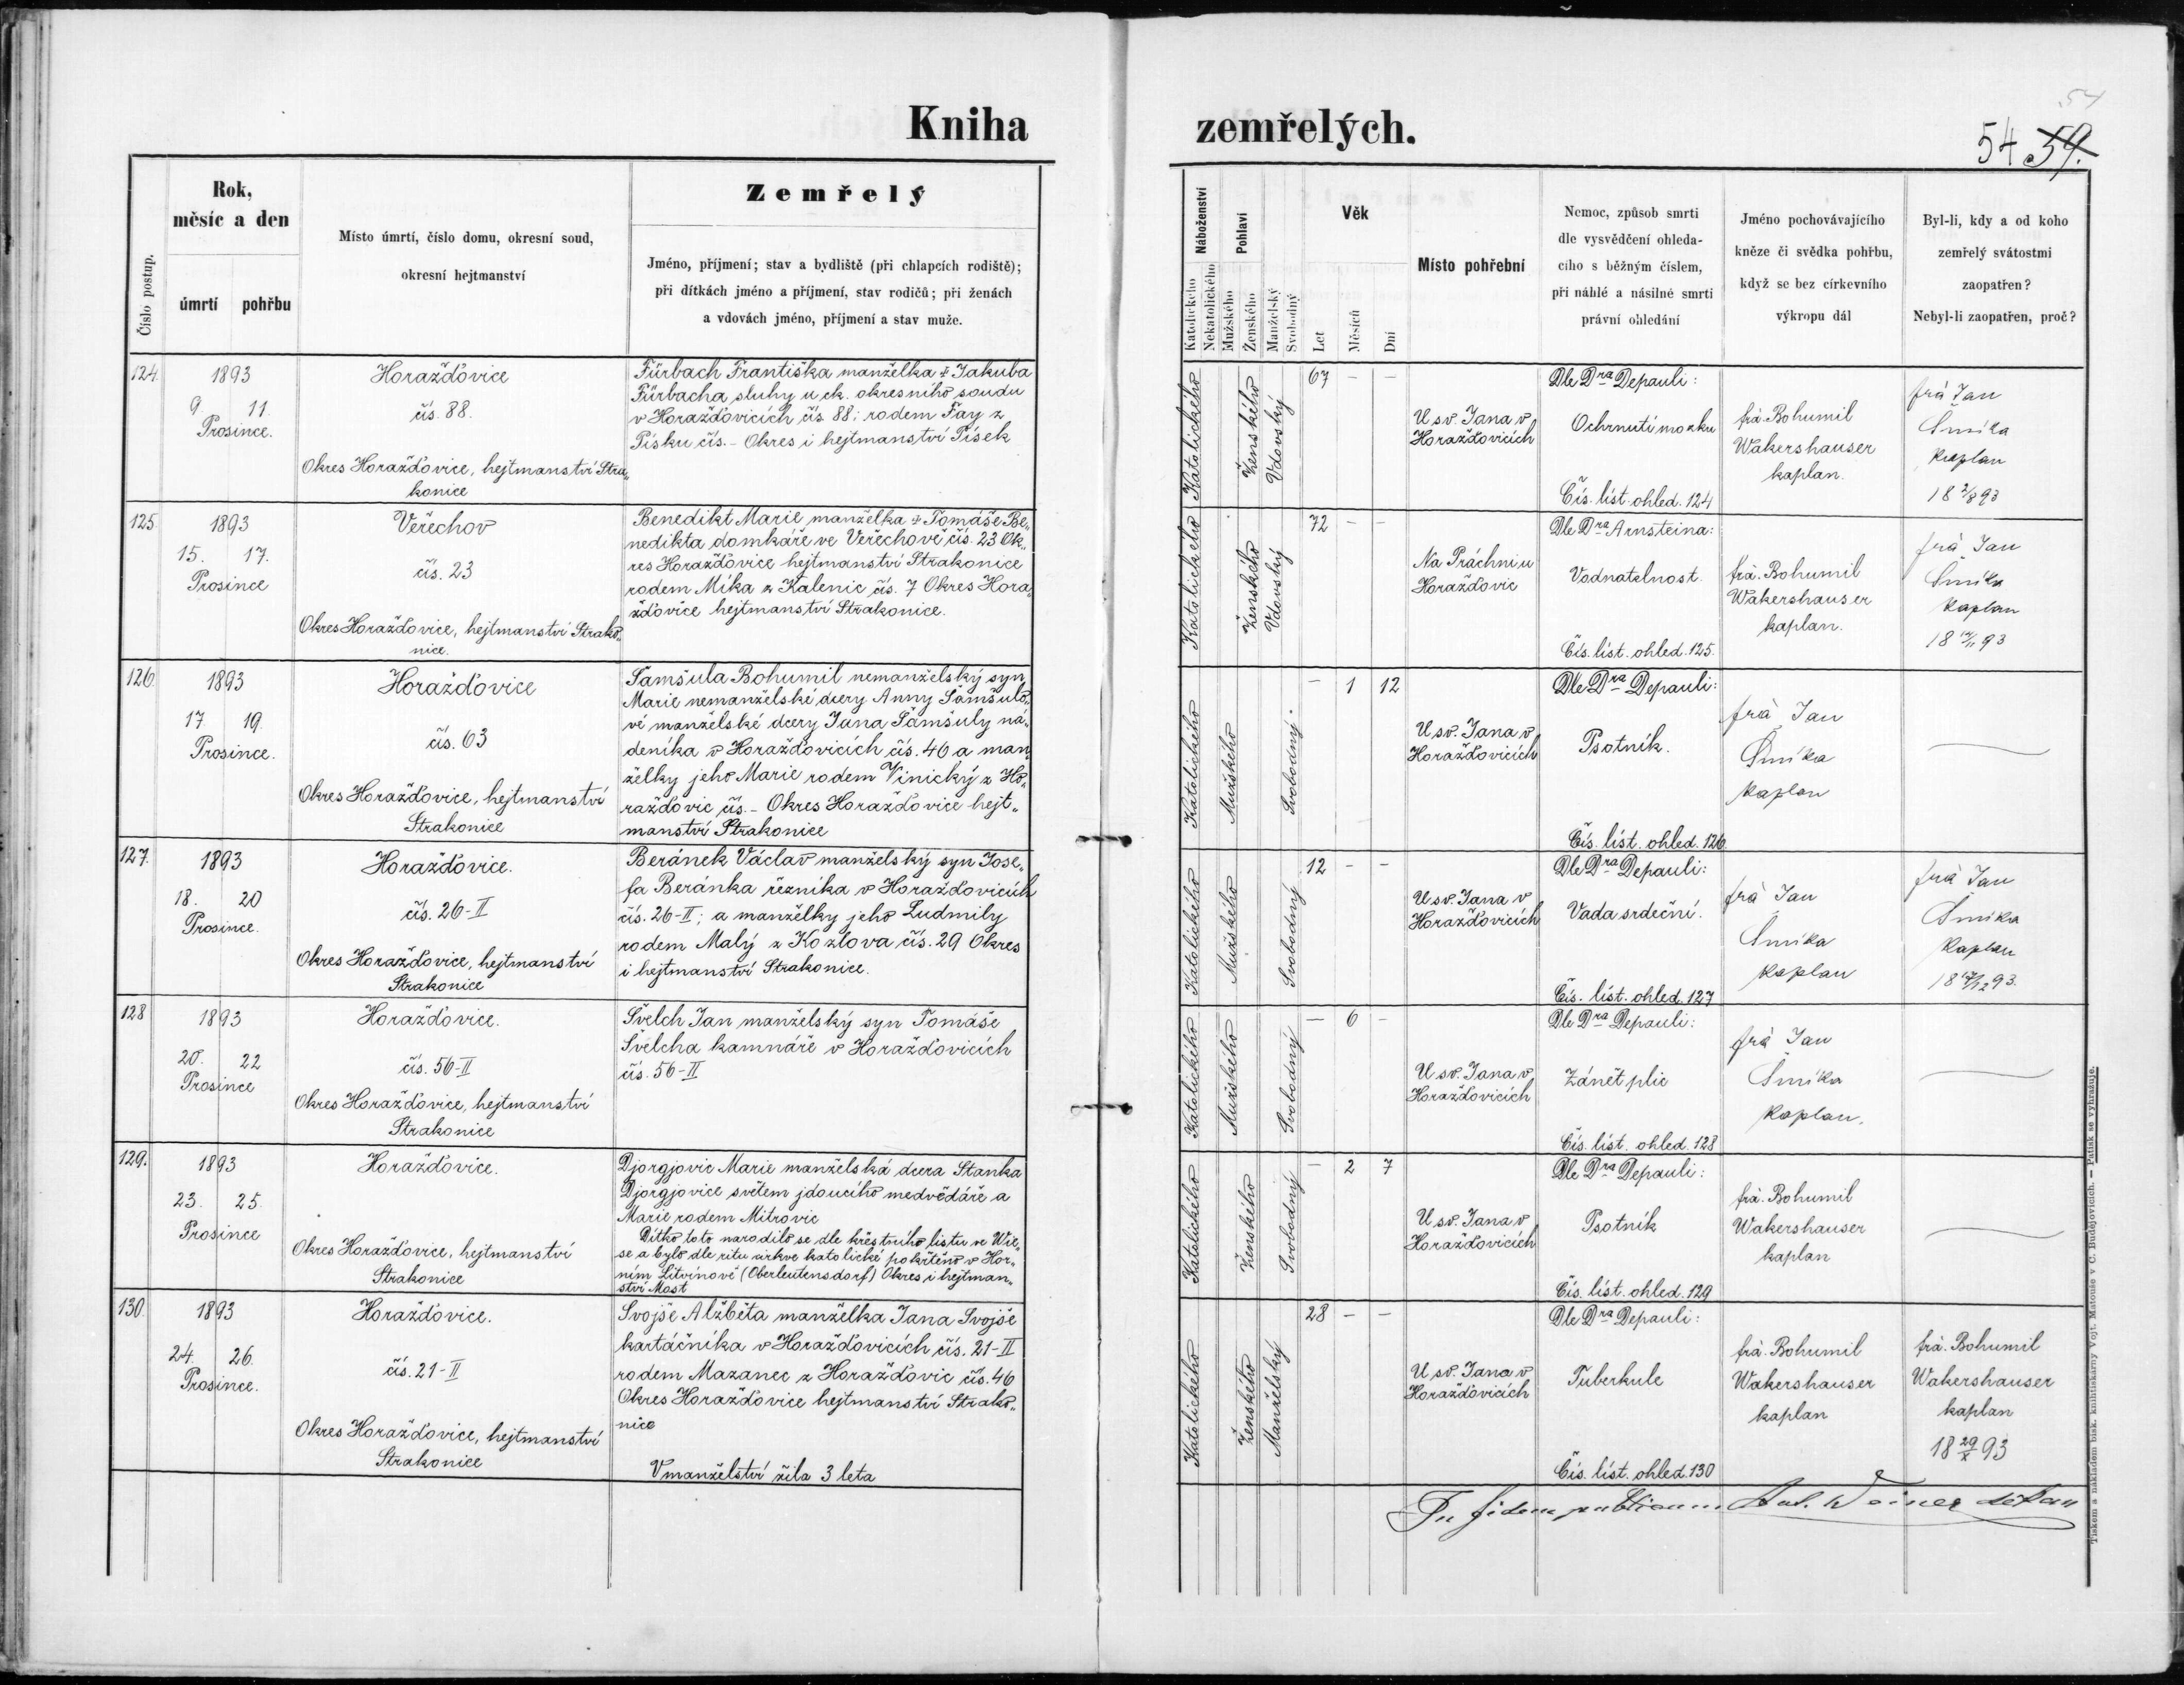 Kniha
Číslo postup.
Rok,
měsíc a den
úmrtí pohřbu
Místo úmrtí, číslo domu, okresní soud,
okresní hejtmanství
Zemřelý
Jméno, příjmení; stav a bydliště (při chlapcích rodiště);
při dítkách jméno a příjmení, stav rodičů; při ženách
a vdovách jméno, příjmení a stav muže.
124.
1893
9 11.
Prosince.
Horažďovice
čís. 88.
Okres Horažďovice, hejtmanství Stra„
konice
Fürbach Františka manželka † Jakuba
Fürbacha sluhy u ck. okresního soudu
v Horažďovicích čís. 88; rodem Fay z
Písku čís. - Okres i hejtmanství Písek
125
1893
15. 17.
Prosince
Veřechov
čís. 23
Okres Horažďovice, hejtmanství Strako„
nice.
Benedikt Marie manželka † Tomáše Be„
nedikta domkáře ve Veřechově čís. 23 Ok„
res Horažďovice hejtmanství Strakonice
rodem Míka z Kalenic čís. 7 Okres Hora„
žďovice hejtmanství Strakonice.
126
1893
17 19.
Prosince.
Horažďovice
čís. 63
Okres Horažďovice, hejtmanství
Strakonice
Šamšula Bohumil nemanželský syn
Marie nemanželské dcery Anny Šamšulo„
vé manželské dcery Jana Šamšuly ná„
deníka v Horažďovicích čís. 46 a man„
želky jeho Marie rodem Vinický z Ho„
ražďovic čís. - Okres Horažďovice hejt„
manství Strakonice
127.
1893
18. 20
Prosince.
Horažďovice.
čís. 26-II
Okres Horažďovice, hejtmanství
Strakonice
Beránek Václav manželský syn Jose„
fa Beránka řezníka v Horažďovicích
čís. 26-II; a manželky jeho Ludmily
rodem Malý z Kozlova čís. 29 Okres
i hejtmanství Strakonice.
128
1893
20. 22
Prosince
Horažďovice.
čís. 56-II
Okres Horažďovice, hejtmanství
Strakonice
Švelch Jan manželský syn Tomáše
Švelcha kamnáře v Horažďovicích
čís. 56-II
129.
1893
23. 25.
Prosince
Horažďovice.
Okres Horažďovice, hejtmanství
Strakonice
Djorgjovic Marie manželská dcera Stanka
Djorgjovice světem jdoucího medvědáře a
Marie rodem Mitrovic
Dítko toto narodilo se dle křestního listu ve Wie„
se a bylo dle ritu církve katolické pokřtěno v Hor„
ním Litvínově (Oberleutensdorf) Okres i hejtman„
ství Most
130.
1893
24. 26.
Prosince.
Horažďovice.
čís. 21-II
Okres Horažďovice, hejtmanství
Strakonice
Svojše Alžběta manželka Jana Svojše
kartáčníka v Horažďovicích čís. 21-II
rodem Mazanec z Horažďovic čís. 46
Okres Horažďovice hejtmanství Strako„
nice
V manželství žila 3 leta
zemřelých.
54
54 59.
Náboženství
Katolického
Nekatolického
Pohlaví
Mužského
Ženského
Manželský
Svobodný
Věk
Let
Měsíců
Dní
Místo pohřební
Nemoc, způsob smrti
dle vysvědčení ohleda-
cího s běžným číslem,
při náhlé a násilné smrti
právní ohledání
Jméno pochovávajícího
kněze či svědka pohřbu,
když se bez církevního
výkropu dál
Byl-li, kdy a od koho
zemřelý svátostmi
zaopatřen?
Nebyl-li zaopatřen, proč?
Katolického
Ženského
Vdovský
67 - -
U sv. Jana v
Horažďovicích
Dle Dra Depauli:
Ochrnutí mozku
Čís. líst. ohled. 124
frà. Bohumil
Wakershauser
kaplan.
frà Jan
Šmíka
kaplan
18 2/8 93
Katolického
Ženského
Vdovský
72 - -
Na Práchni u
Horažďovic
Dle Dra Arnsteina:
Vodnatelnost.
Čís. líst. ohled. 125.
frà. Bohumil
Wakershauser
kaplan.
frà Jan
Šmíka
kaplan
Katolického
Mužského
Svobodný
- 1 12
U sv. Jana v
Horažďovicích
Dle Dra Depauli:
Psotník.
Čís. líst. ohled. 126
frà Jan
Šmíka
kaplan
Katolického
Mužského
Svobodný
12 - -
U sv. Jana v
Horažďovicích
Dle Dra Depauli:
Vada srdeční.
Čís. líst. ohled. 127
frà Jan
Šmíka
kaplan
frà Jan
Šmíka
kaplan
Katolického
Mužského
Svobodný
- 6 -
U sv. Jana v
Horažďovicích
Dle Dra Depauli:
Zánět plic
Čís. líst. ohled. 128
frà Jan
Šmíka
kaplan.
Katolického
Ženského
Svobodný
- 2 7
U sv. Jana v
Horažďovicích
Dle Dra Depauli:
Psotník
Čís. líst. ohled. 129
frà. Bohumil
Wakershauser
kaplan
Katolického
Ženského
Manželský
28 - -
U sv. Jana v
Horažďovicích
Dle Dra Depauli:
Tuberkule
Čís. líst. ohled. 130
frà. Bohumil
Wakershauser
kaplan
frà. Bohumil
Wakershauser
kaplan
18 29/X 93
In fidem publicam Ant. Weiner děkan
Tiskem a nákladem bisk. knihtiskárny Vojt. Matouše v Č. Budějovicích. — Patisk se vyhražuje.